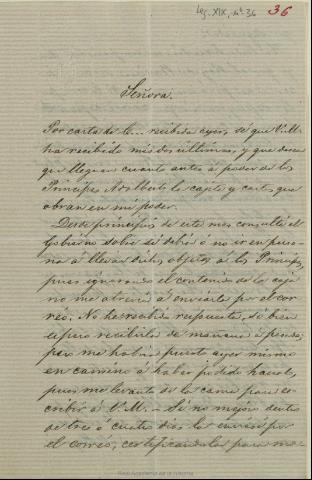 Leg. XIX, nº 36
36
Señora.
Por carta de L... recibida ayer, sé que V. M.
ha recibido mis dos últimas, y que desea
que lleguen cuanto antes á poder de los
Príncipes Adalberto la cajita y cartas que
obran en mi poder.
Desde principios de este mes consulté al
Gobierno sobre si debía ó no ir en perso-
na á llevar dichos objetos á los Príncipes,
pues ignorando el contenido de la caja
no me atrevía á enviarla por el cor-
reo. No he recibido respuesta, si bien
espero recibirla de mañana á pasado;
pero me habría puesto ayer mismo
en camino á haber podido hacerlo,
pues me levanto de la cama para es-
cribir á V. M. - Si no mejoro dentro
de tres ó cuatro días las enviaré por
el correo, certificándolas para ma-
Real Academia de la Historia